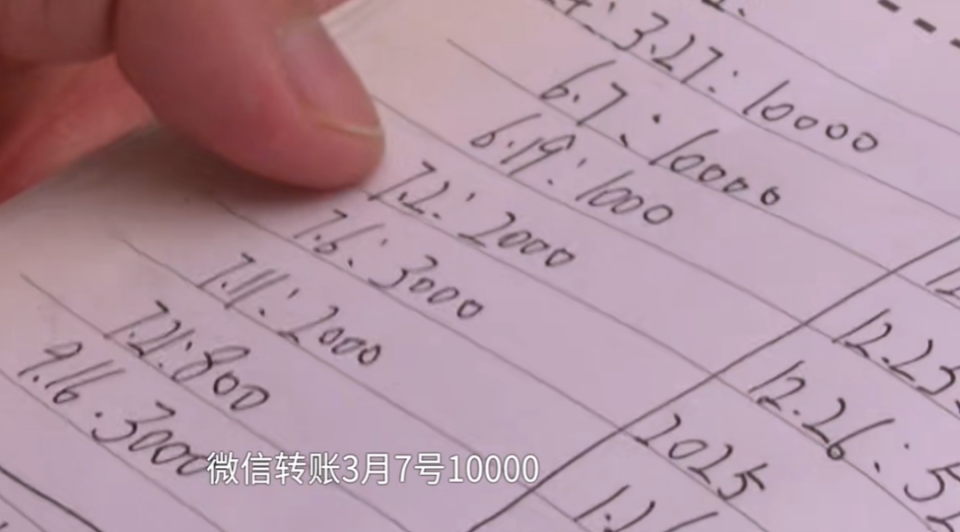 3.27:10000
6.7:10000
6.19:1000
7.2:2000
7.6:3000
7.11:2000
7.21:800
9.16:3000
12.25
12.26:5
2025
微信转账3月7号10000